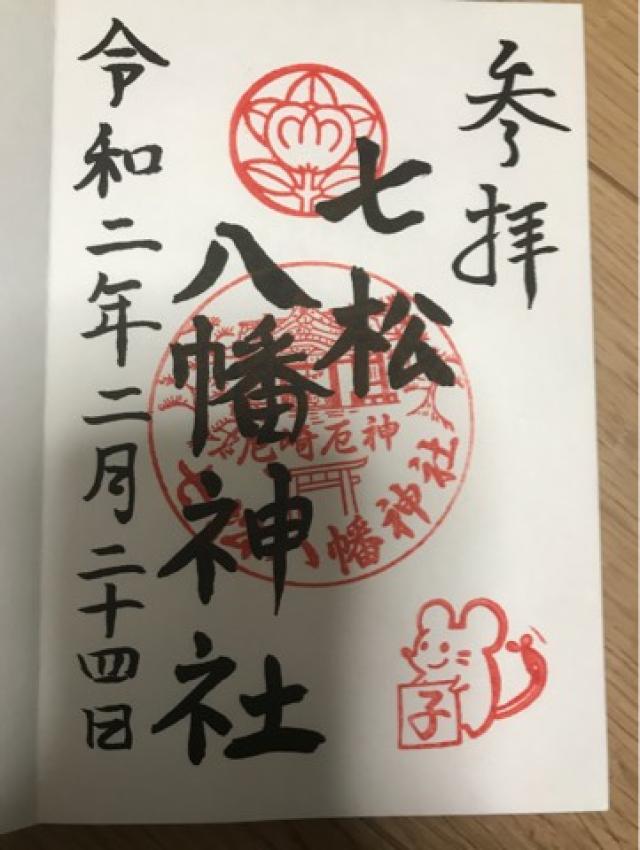 参拝
七松
八幡神社
令和二年二月二十四日
尼崎厄神
七松八幡神社
子